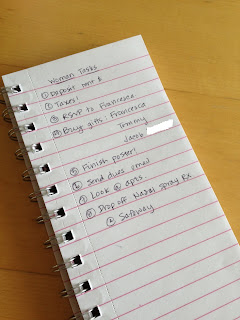 Woman Tasks
① Deposit rent $
② Taxes!
③ RSVP to Francesca
④ Buy gifts: Francesca
Tommy
Jacob
⑤ Finish poster!
⑥ Send dues email
⑦ Look @ apts.
⑧ Drop off Nasal Spray Rx
@ Safeway